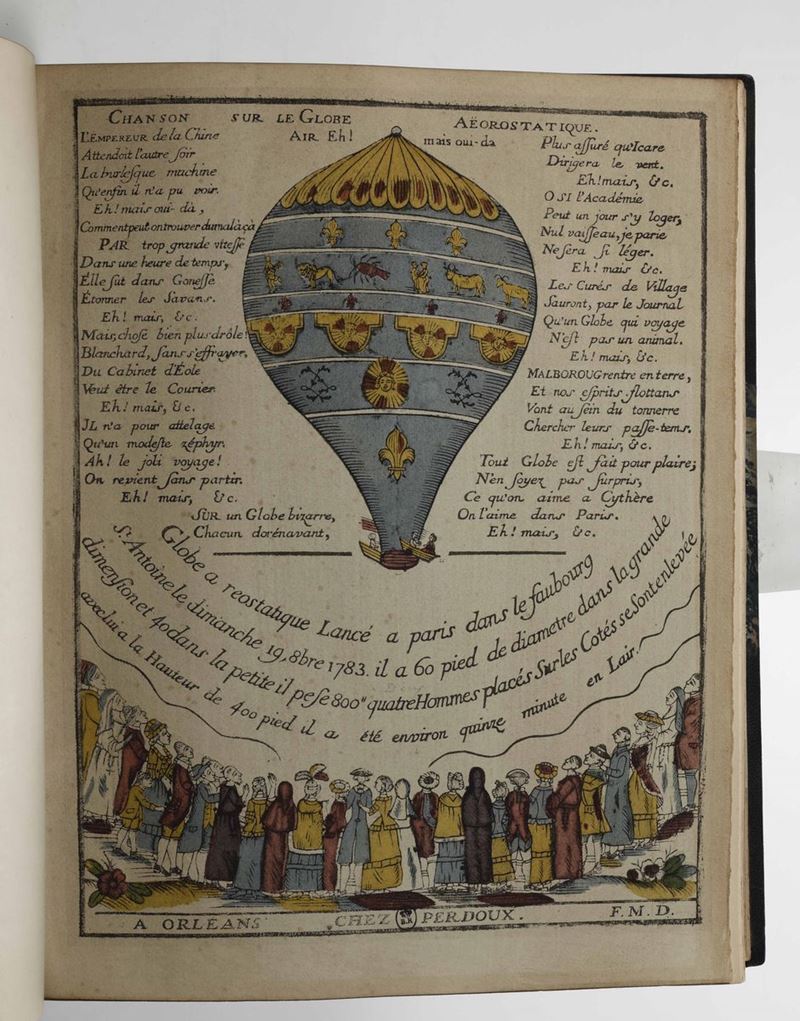 CHANSON SUR LE GLOBE AËOROSTATIQUE.
AIR Eh! mais oui-da
L'EMPEREUR de la Chine
Attendoit l'autre ſoir
La burleſque machine
Qu'enfin il n'a pu voir.
Eh! mais oui-da,
Comment peut on trouver du mal à çà
PAR trop grande viteſſe
Dans une heure de temps,
Elle fut dans Goneſſe
Étonner les Savans.
Eh! mais, &c.
Mais, choſe bien plus drôle!
Blanchard, ſans s'effrayer,
Du Cabinet d'Éole
Veut être le Courier.
Eh! mais, &c.
JL n'a pour attelage
Qu'un modeſte zéphyr.
Ah! le joli voyage!
On revient ſans partir.
Eh! mais, &c.
SUR un Globe bizarre,
Chacun dorénavant,
Plus aſſuré qu'Icare
Dirigera le vent.
Eh! mais, &c.
O SI l'Académie
Peut un jour s'y loger,
Nul vaiſſeau, je parie
Ne ſera ſi léger.
Eh! mais &c.
Les Curés de Village
Sauront, par le Journal
Qu'un Globe qui voyage
N'eſt pas un animal.
Eh! mais, &c.
MALBOROUG rentre en terre,
Et nos eſprits flottans
Vont au ſein du tonnerre
Chercher leurs paſſe-tems.
Eh! mais, &c.
Tout Globe eſt fait pour plaire;
N'en ſoyez pas ſurpris,
Ce qu'on aime a Cythère
On l'aime dans Paris.
Eh! mais, &c.
Globe a reostatique Lancé a paris dans le faubourg
St. Antoine le dimanche 19. 8bre 1783. il a 60 pied de diametre dans la grande
dimenſion et 40 dans la petite il peſe 800" quatre Hommes placés Sur les Cotés se Sont enlevée
avec lui a la Hauteur de 400 pied il a été environ quinze minute en Lair.
A ORLEANS CHEZ PERDOUX. F. M. D.